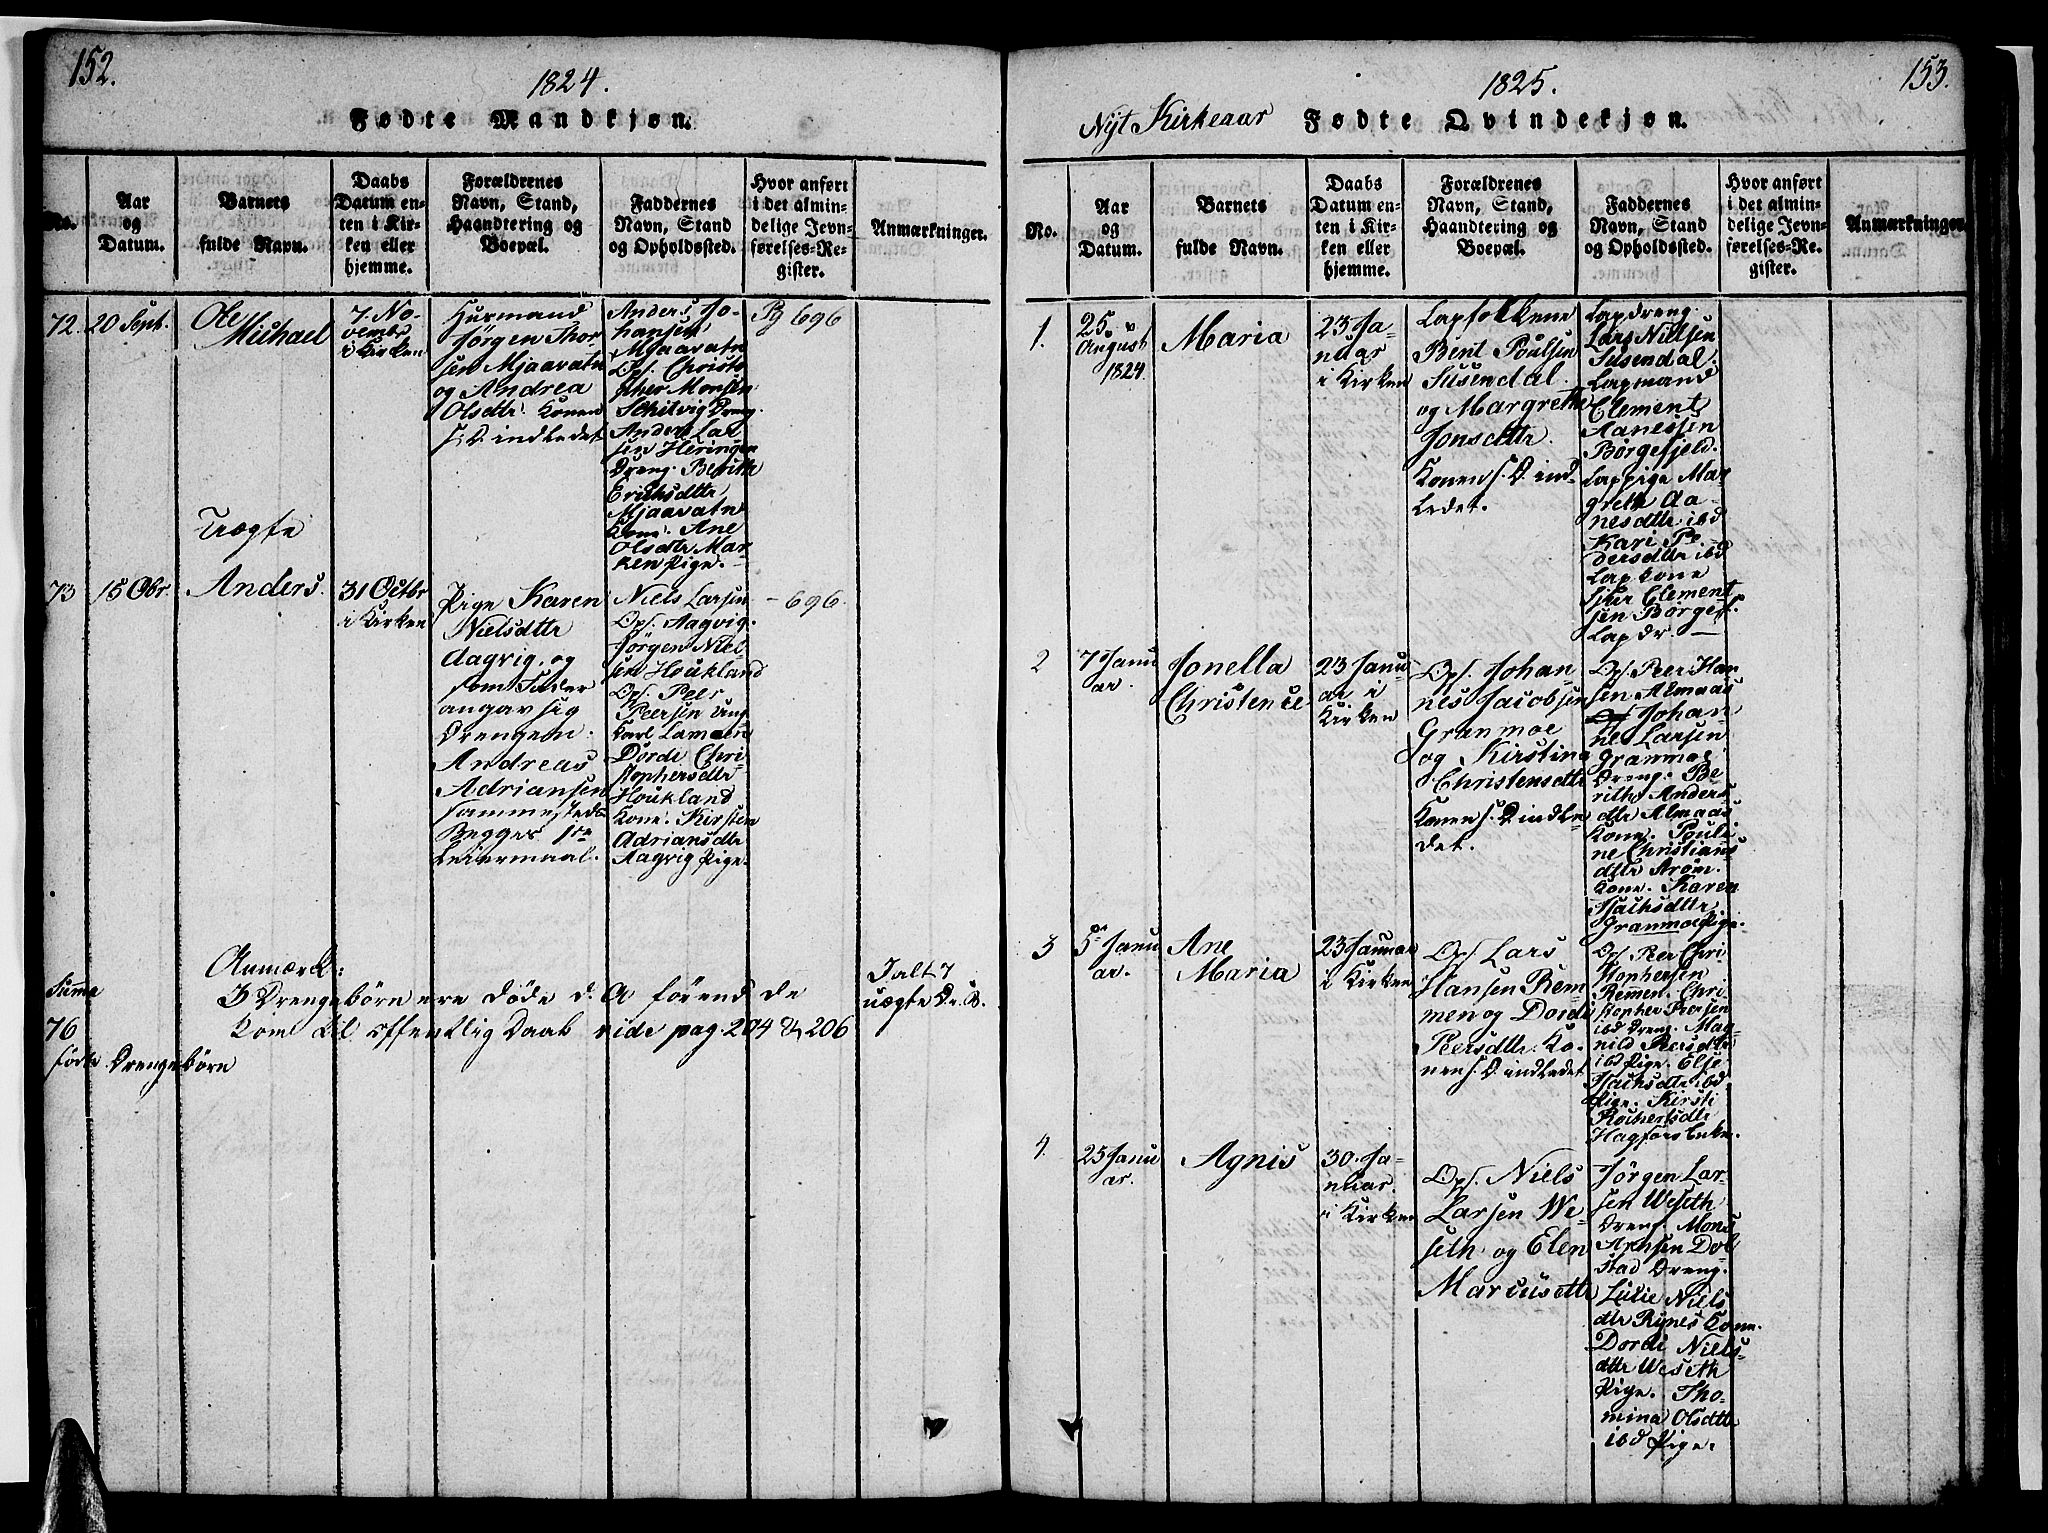 152.
1824.
Fødte Mandkjøn.
No.
Aar
og
Datum.
Barnets
fulde Navn.
Daabs
Datum en-
ten i Kir-
ken eller
hjemme.
Forældrenes
Navn, Stand,
Haandtering og
Boepæl.
Faddernes
Navn, Stand
og Opholdssted.
Hvor anført
i det almin-
delige Jevn-
førelses-Re-
gister.
Anmærkninger.
72.
20 Sept.
Ole
Michael
7 No-
vembr
i Kirken
Huusmand
Jørgen Thor
sen Mjaavatn
og Andrea
Olsdtr. Konen
f. D. indledet
Anders Jo-
hansen
Mjaavatn
Ops. Christo
pher Monsen
Schitvig Dreng.
Anders Lar
sen Heringen
Dreng. Berith
Erichsdtr
Mjaavatn
Kone. Ane
Olsdtr Mar-
ken Pige.
Pg 696
Uægte
73
15 Obr.
Anders.
31 Octbr
i Kirken
Pige Karen
Nielsdttr
Aagvig. og
som Fader
angav sig
Drengen
Andreas
Adriansen
sammesteds
Begges 1te
Leiermaal.
Niels Larsen
Ops. Aagvig.
Jørgen Niel-
sen Houkland
Ops. Peer
Peersen Ung
Karl Lamoen
Dordi Chri-
stophersdtr
Houkland
Kone. Kirsten
Adriansdtr
Aagvig Pige.
- 696.
Anmærk:
3 Drengebørn ere døde d. A førend de
kom til offentlig Daab vide pag. 204 & 206
Summa
76
fødte Drengebørn
I alt 7
uægte Dr. B.
Nyt Kirkeaar
1825.
153.
Fødte Qvindekjøn.
No.
Aar
og
Datum.
Barnets
fulde Navn.
Daabs
Datum en-
ten i Kir-
ken eller
hjemme.
Forældrenes
Navn, Stand,
Haandtering og
Boepæl.
Faddernes
Navn, Stand
og Opholdssted.
Hvor anført
i det almin-
delige Jevn-
førelses-Re-
gister.
Anmærkninger.
1.
25
August
1824.
Maria
23 Ja-
nuar
i Kirken
Lapfolkene
Bent Poulsen
Susendal.
og Margrethe
Jonsdttr.
Konen f. D. ind-
ledet.
Lapdreng.
Lars Nielsen
Susendal.
Lapmand
Clement
Aanessen
Børgefjeld.
Lappige Mar
grethe Aa-
nesdttr ibd
Kari Pe
dersdttr ibd
Lapkone
Clement
sen Børgef.
Lapdr
2
7 Janu
ar.
Jonella
Christence
23 Janu-
ar i
Kirken
Ops. Johan-
nes Jacobsen
Granmoe
og Kirstina
Christensdttr
Konen f. D. indle-
det.
Ops. Peer Han-
sen Almaas
Johan
nes Larsen
Granmoe
Dreng. Be
rith Anders
dttr Almaas
Kone. Pouli
ne Christians
dttr Strøm.
Kone. Karen
Isachsdttr.
Granmoe Pige.
3
5 Janu
ar.
Ane
Maria
23 Januar
i Kirken
Ops Lars
Hansen Rem
men og Dordi
Peersdttr. Ko-
nen f. D. indledet
Ops Peer Chri
stophersen
Remmen. Chri-
stopher Peersen
ibd Dreng. Mag-
nild Peersdttr
ibd Pige. Else
Isachsdttr ibd
Pige. Kirsti
Rochertsdtr
Hagfors Enke.
4.
25 Janu
ar.
Agnis
30. Ja-
nuar.
i Kirken
Ops. Niels
Larsen We-
seth og Elen
Marcusdttr
Jørgen Lar-
sen Weseth
Dreng. Mons
Arnsen Dol
stad Dreng.
Lulie Niels
dttr Rynes Kone.
Dordi Niels-
dttr Weseth
Pige. Tho-
mina Olsdttr
ibd Pige.